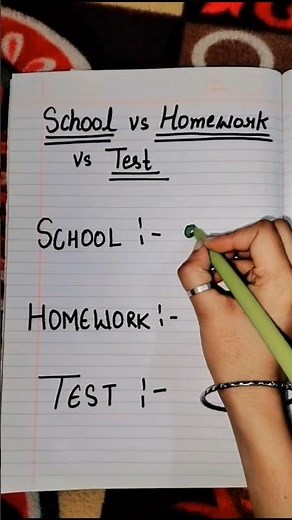 School vs Homework
vs Test
SCHOOL :-
HOMEWORK :-
TEST :-